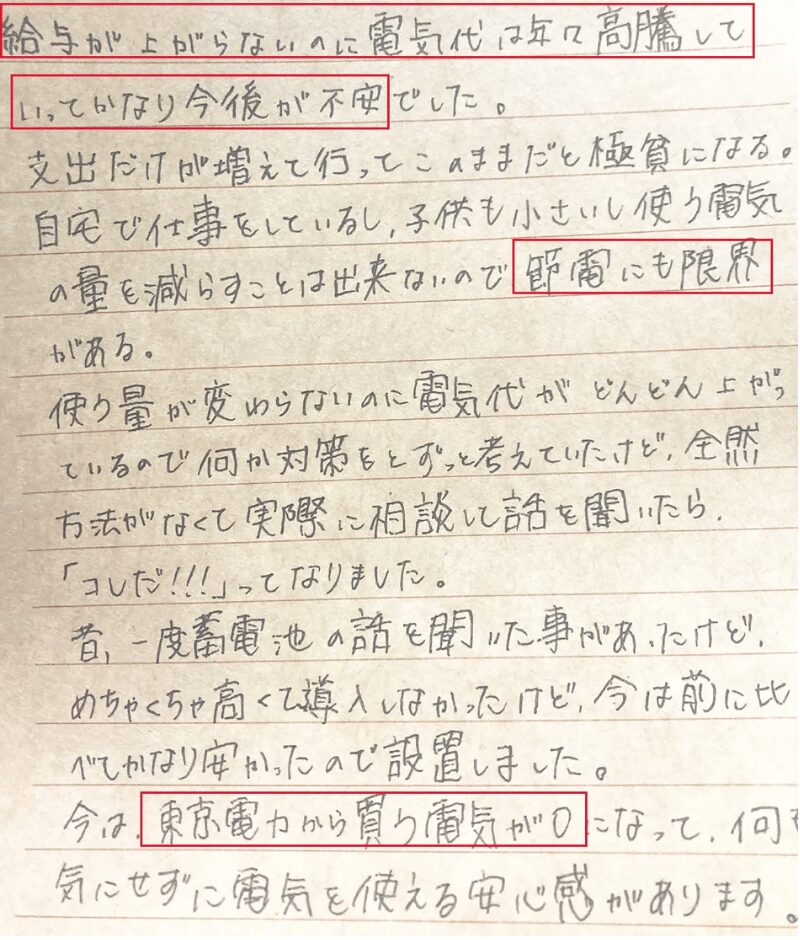 給与が上がらないのに電気代は年々高騰して
いってかなり今後が不安でした。
支出だけが増えて行ってこのままだと極貧になる。
自宅で仕事をしているし、子供も小さいし使う電気
の量を減らすことは出来ないので節電にも限界
がある。
使う量が変わらないのに電気代がどんどん上がっ
ているので何か対策をとずっと考えていたけど、全然
方法がなくて実際に相談して話を聞いたら、
「コレだ!!!」ってなりました。
昔、一度蓄電池の話を聞いた事があったけど、
めちゃくちゃ高くて導入しなかったけど、今は前に比
べてかなり安かったので設置しました。
今は、東京電力から買う電気が0になって、何も
気にせずに電気を使える安心感があります。